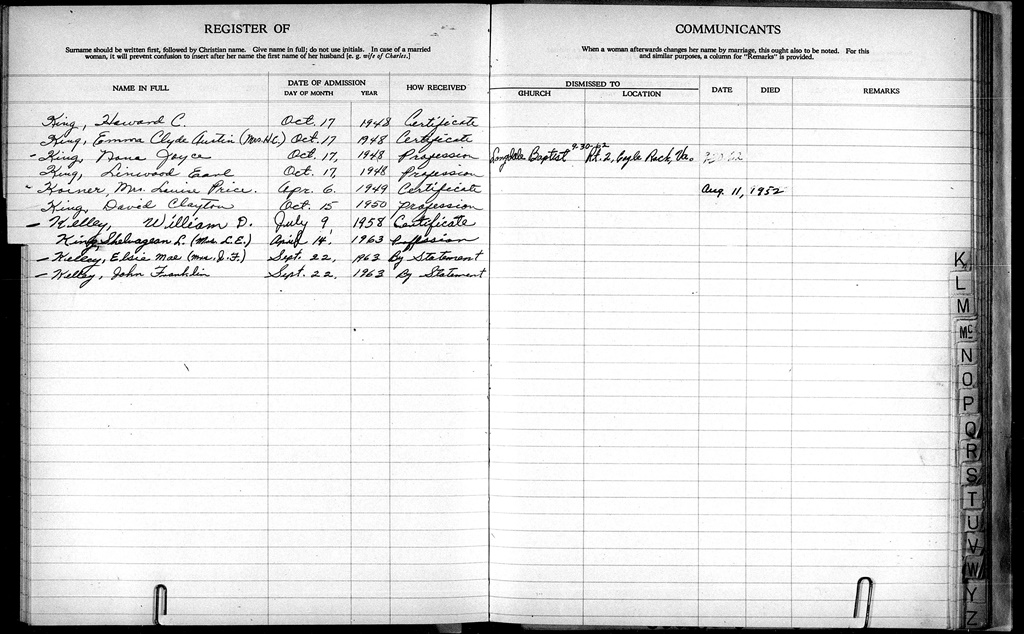 REGISTER OF
Surname should be written first, followed by Christian name. Give name in full; do not use initials. In case of a married
woman, it will prevent confusion to insert after her name the first name of her husband [e. g. wife of Charles.]
NAME IN FULL
DATE OF ADMISSION
DAY OF MONTH YEAR
HOW RECEIVED
King, Howard C. Oct. 17 1948 Certificate
King, Emma Clyde Austin (Mrs. H.C.) Oct. 17 1948 Certificate
- King, Nona Joyce Oct. 17, 1948 Profession
King, Linewood Earl Oct. 17, 1948 Profession
Koiner, Mrs. Louise Price. Apr. 6. 1949 Certificate
King, David Clayton Oct. 15 1950 Profession
- Kelley, William D. July 9, 1958 Certificate
King, Shelvagean L. (Mrs. L.E.) April 14, 1963 Profession
- Kelley, Elsie Mae (Mrs. J.F.) Sept. 22, 1963 By Statement
- Kelley, John Franklin Sept. 22, 1963 By Statement
COMMUNICANTS
When a woman afterwards changes her name by marriage, this ought also to be noted. For this
and similar purposes, a column for "Remarks" is provided.
DISMISSED TO
CHURCH LOCATION
DATE DIED REMARKS
9-30-62
Longdale Baptist Rt. 2, Eagle Rock, Va.
Aug. 11, 1952
K
L
M
Mc
N
O
P
Q
R
S
T
U
V
W
Y
Z